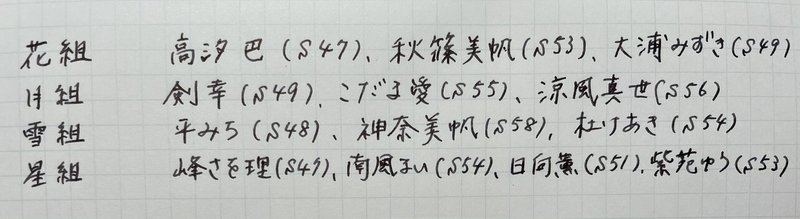 花組 高汐巴(S47)、秋篠美帆(S53)、大浦みずき(S49)
月組 剣幸(S49)、こだま愛(S55)、涼風真世(S56)
雪組 平みち(S48)、神奈美帆(S58)、杜けあき(S54)
星組 峰さを理(S47)、南風まい(S54)、日向薫(S51)、紫苑ゆう(S53)